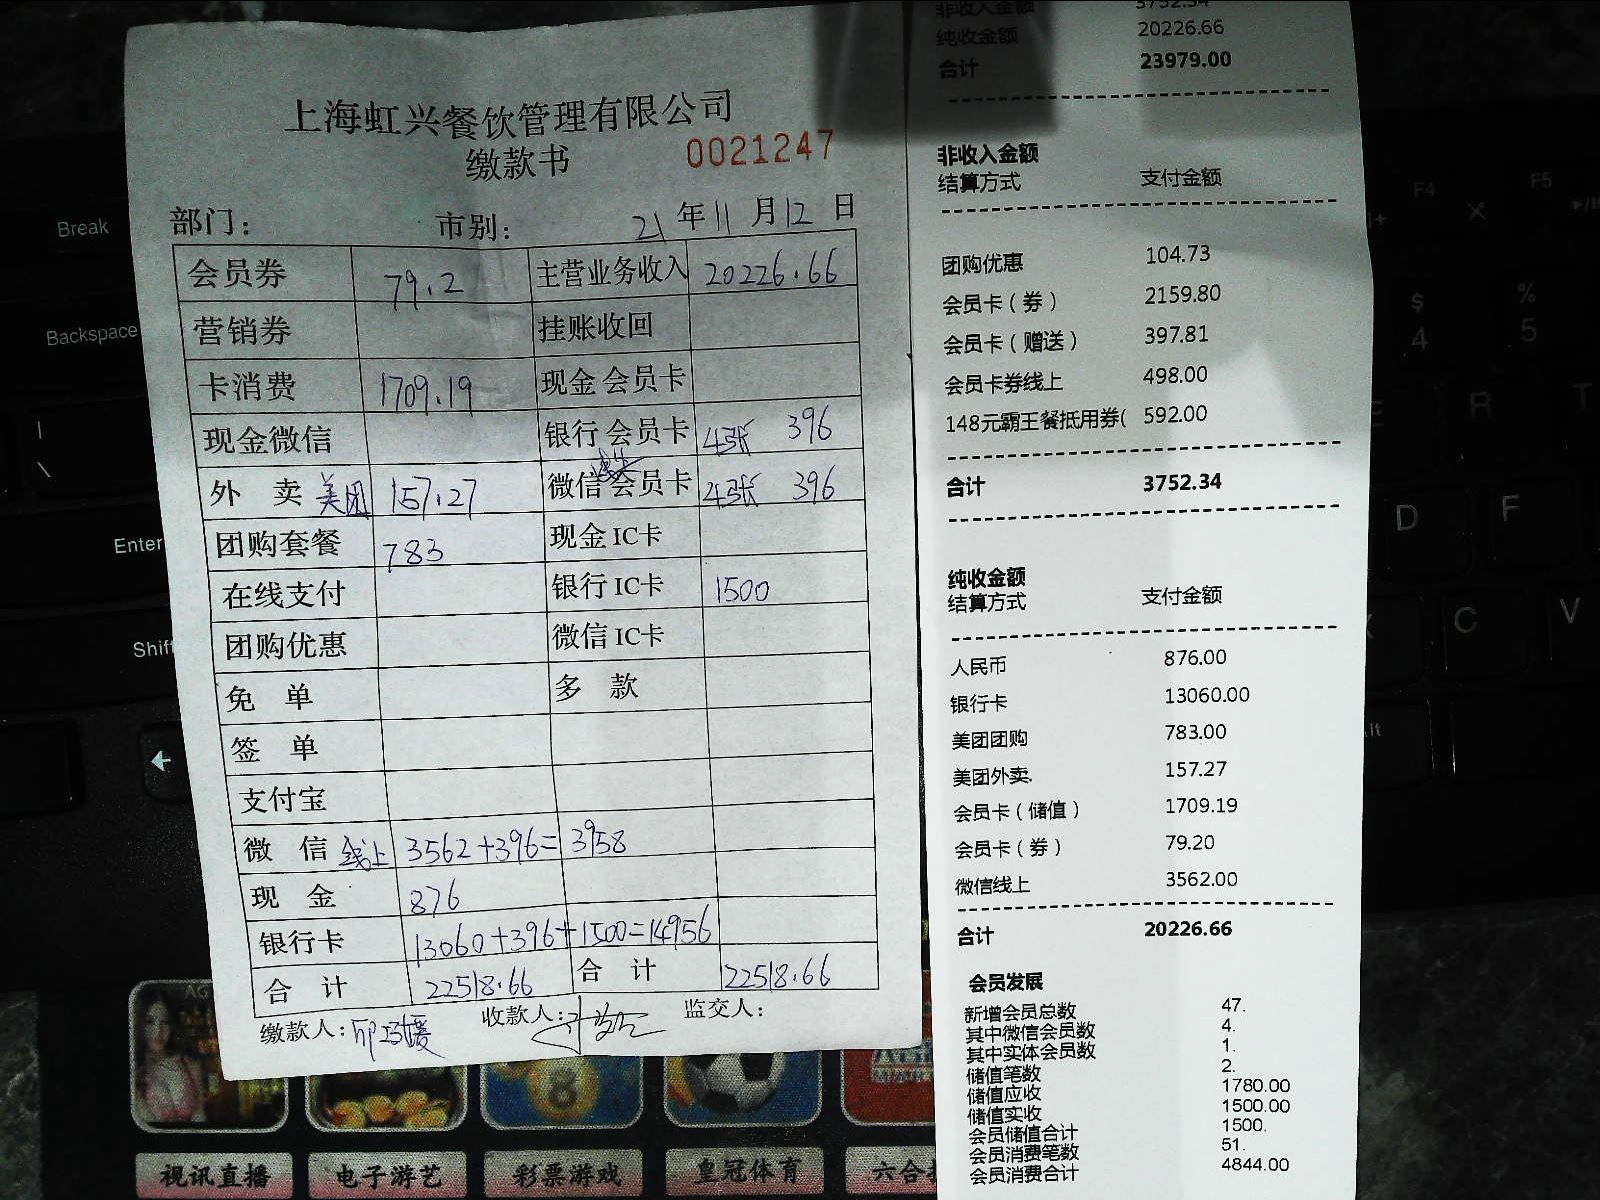 上海虹兴餐饮管理有限公司
缴款书
0021247
部门: 市别: 21 年 11 月 12 日
会员券 79.2 主营业务收入 20226.66
营销券 挂账收回
卡消费 1709.19 现金 会员卡
现金微信 银行 会员卡 4张 396
外 卖 美团 157.27 微信 会员卡 4张 396
团购套餐 783 现金 IC卡
在线支付 银行 IC卡 1500
团购优惠 微信 IC卡
免 单 多 款
签 单
支付宝
微 信 线上 3562+396= 3958
现 金 876
银行卡 13060+396+1500=14956
合 计 22518.66 合 计 22518.66
缴款人: 收款人: 监交人:
非收入金额 3752.34
纯收金额 20226.66
合计 23979.00
非收入金额
结算方式 支付金额
团购优惠 104.73
会员卡（券） 2159.80
会员卡（赠送） 397.81
会员卡券线上 498.00
148元霸王餐抵用券( 592.00
合计 3752.34
纯收金额
结算方式 支付金额
人民币 876.00
银行卡 13060.00
美团团购 783.00
美团外卖. 157.27
会员卡（储值） 1709.19
会员卡（券） 79.20
微信线上 3562.00
合计 20226.66
会员发展
新增会员总数 47.
其中微信会员数 4.
其中实体会员数 1.
储值笔数 2.
储值应收 1780.00
储值实收 1500.00
会员储值合计 1500.
会员消费笔数 51.
会员消费合计 4844.00
Break
Backspace
Enter
Shift
F4
F5
$
4
%
5
E
R
T
D
F
C
V
视讯直播
电子游艺
彩票游戏
皇冠体育
六合